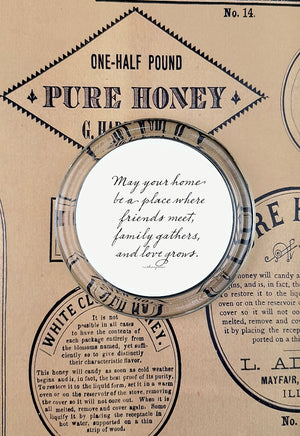 No. 14.
ONE-HALF POUND
PURE HONEY
G. HA
May your home
be a place where
friends meet,
family gathers,
and love grows.
RE H
honey will candy a
gins, and is, in fact, the best
To restore it to the liquid
over or on the reservoir
cover so it will not o
must be all melted,
it by placing the
hot water, supported
L. A
MAYFAIR,
ILL
No.
WHITE CL
NEY.
It is not
possible in all cases
to have the contents of
each package entirely from
the blossoms named, yet suffi-
ciently so to give distinctly
their characteristic flavor.
This honey will candy as soon as cold weather
begins and is, in fact, the best proof of its purity.
To restore it to the liquid form, set it in a warm
oven or on the reservoir of the stove, removing
the cover so it will not ooze out. When it is
all melted, remove and cover again. Some
liquify it by placing the receptacle in
hot water, supported on a thin
strip of wood.